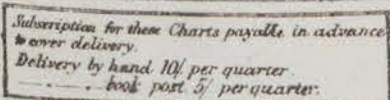 Subscription for these Charts payable in advance
to cover delivery.
Delivery by hand 10/ per quarter
„ book post 5/ per quarter.